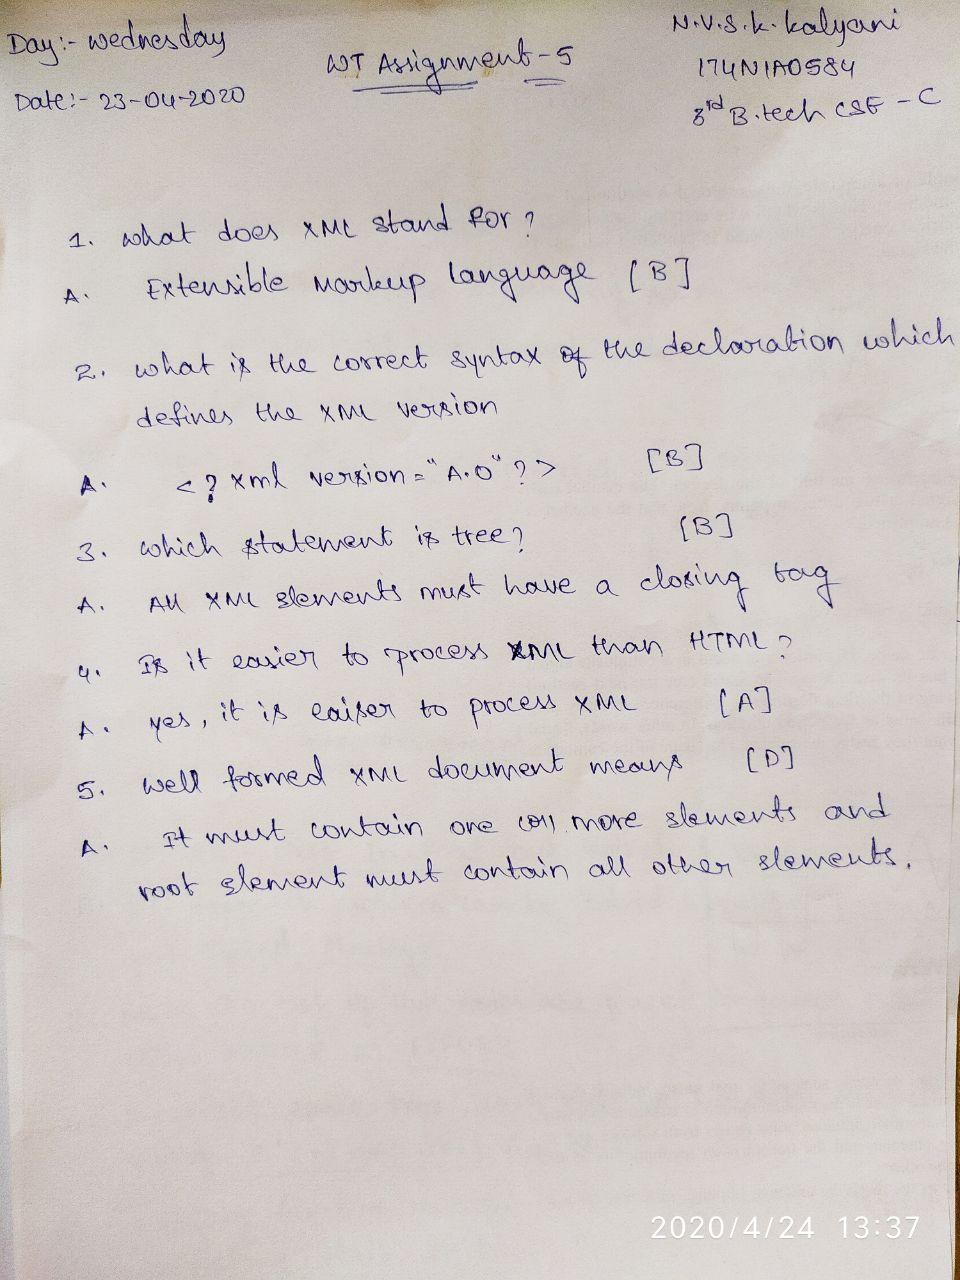 Day:- Wednesday
Date:- 23-04-2020
WT Assignment-5
N.V.S.K. Kalyani
174N1A0584
3rd B.tech CSE - C
1. what does XML stand for?
A. Extensible Markup language [B]
2. what is the correct syntax of the declaration which
defines the XML version
A. <? xml version="A.0"?> [B]
3. which statement is tree? [B]
A. All XML elements must have a closing tag
4. Is it easier to process XML than HTML?
A. yes, it is eaiser to process XML [A]
5. well formed XML document means [D]
A. It must contain one more elements and
root element must contain all other elements.
2020/4/24 13:37